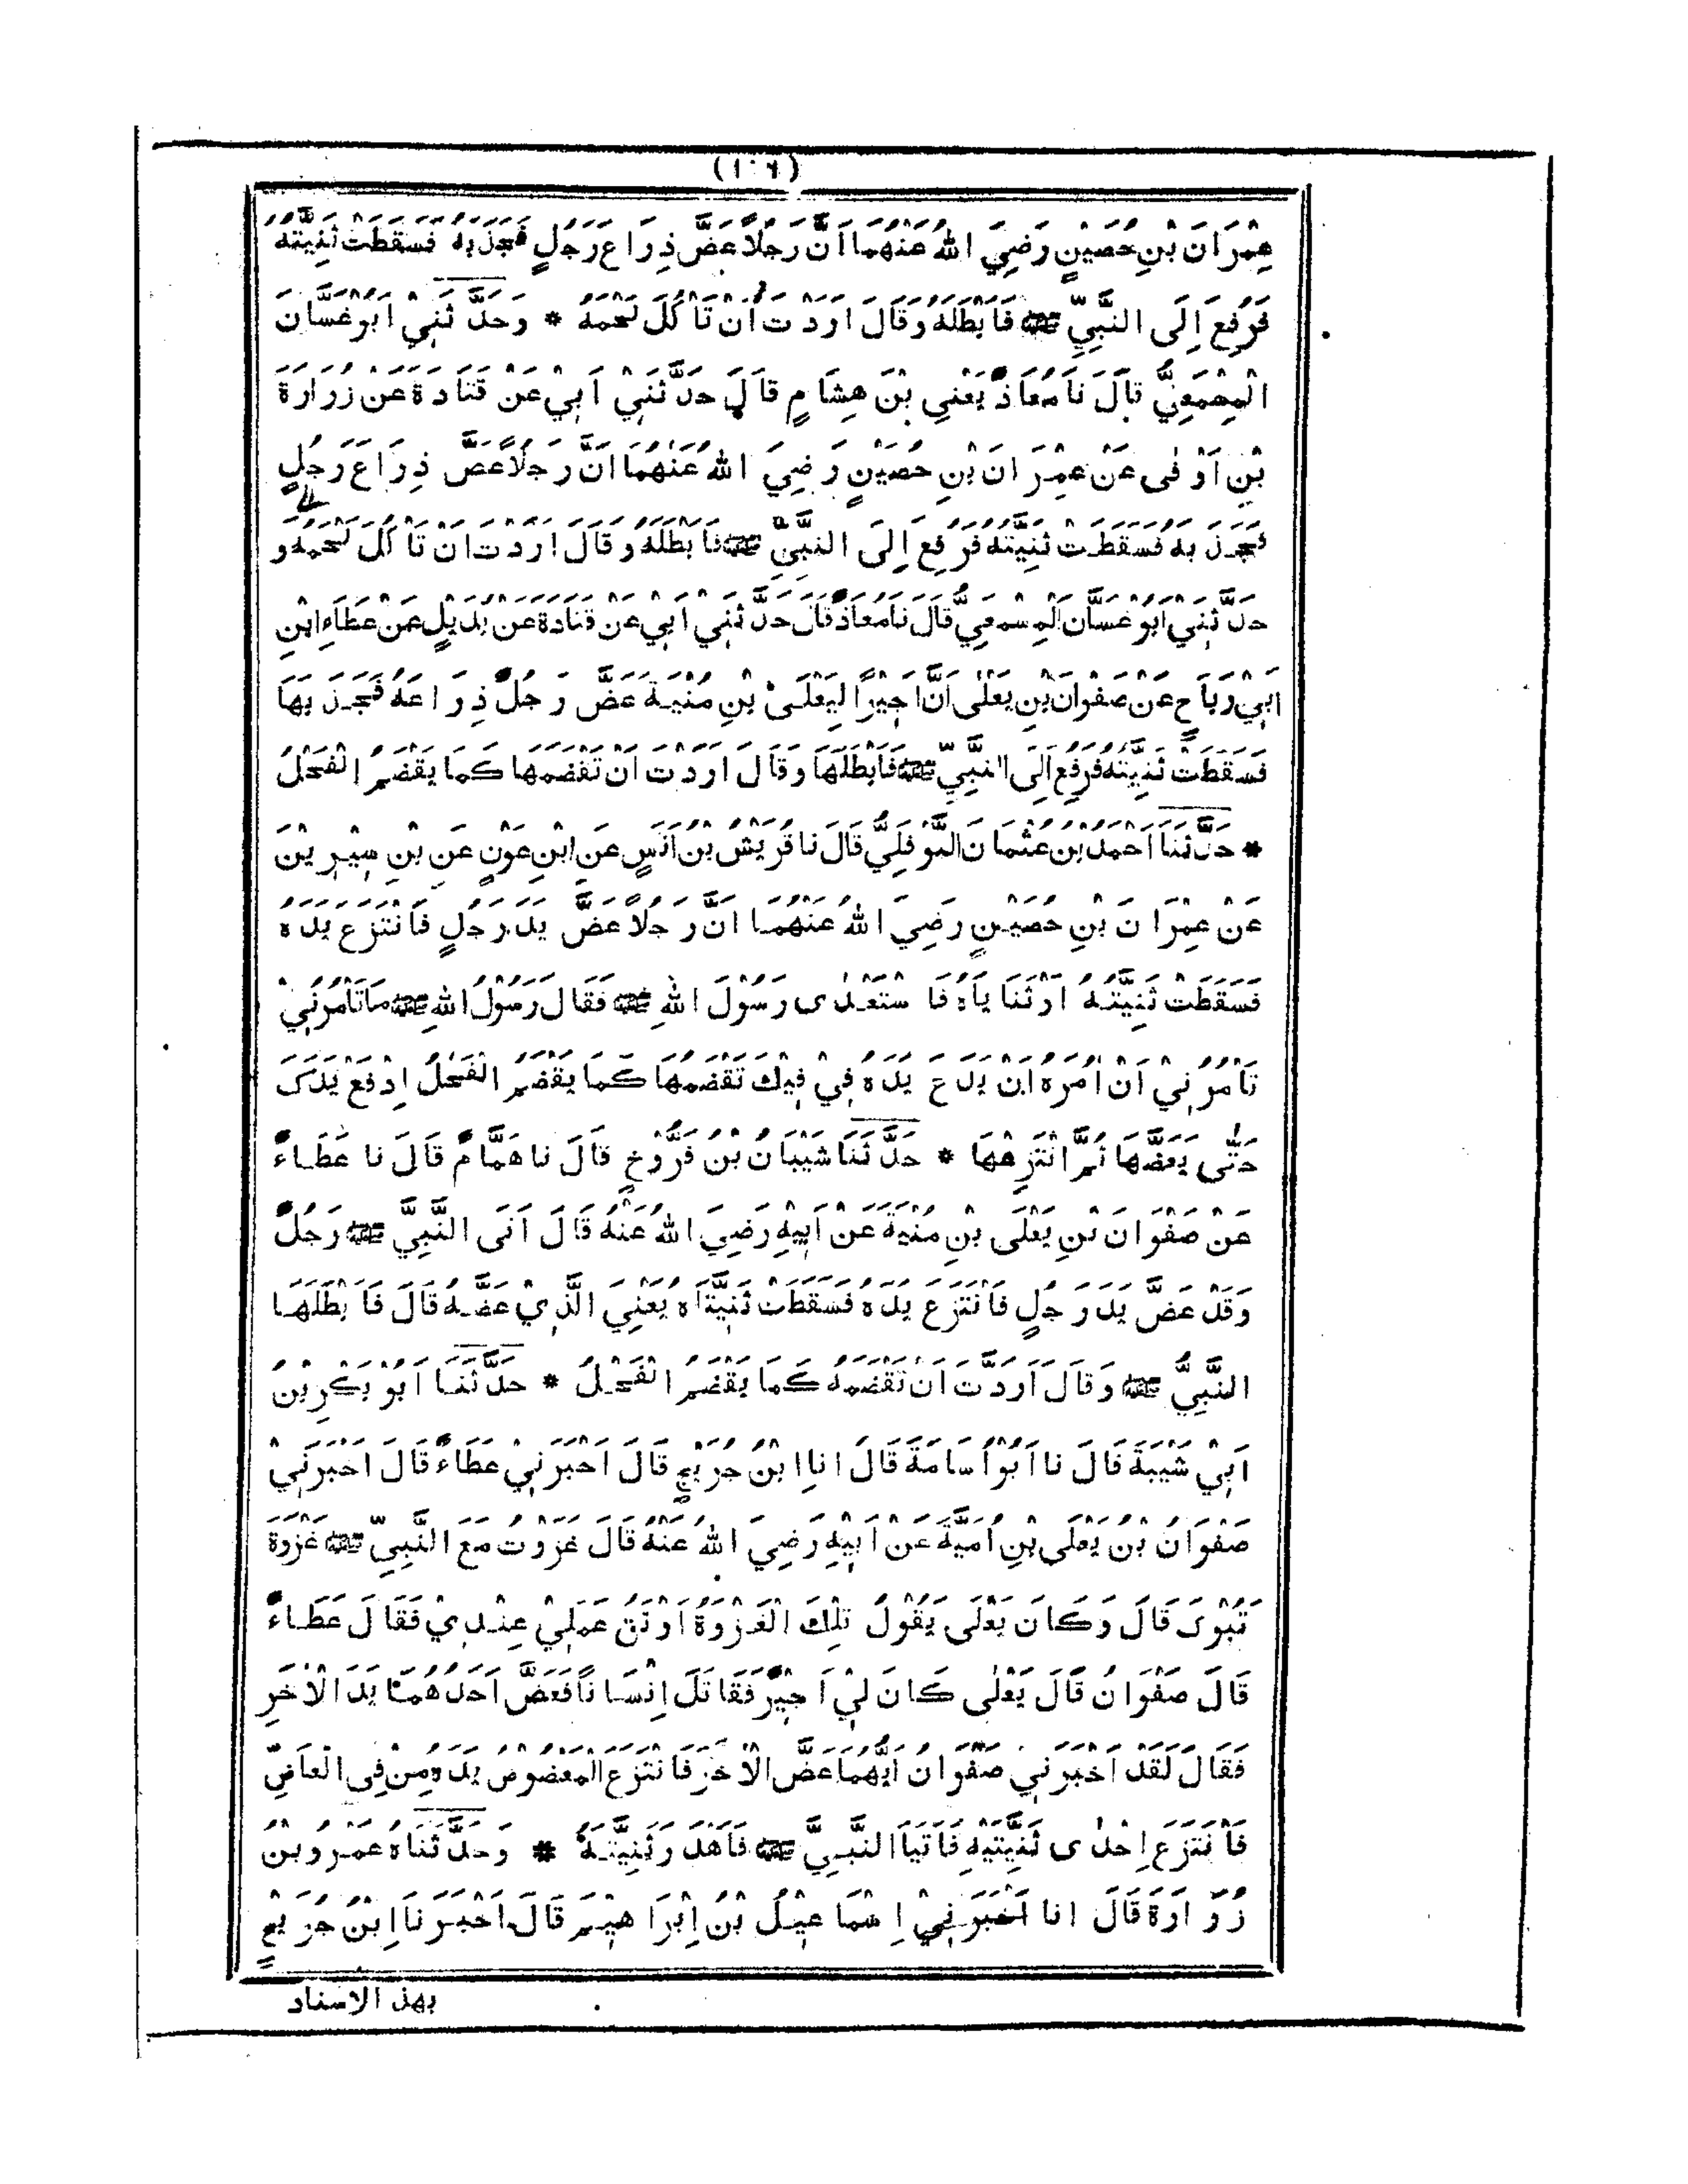 (١٠٦)
عِمْرَانَ بْنِ حُصَيْنٍ رَضِيَ اللهُ عَنْهُمَا اَنَّ رَجُلًا عَضَّ ذِرَاعَ رَجُلٍ فَجَذَبَهُ فَسَقَطَتْ ثَنِيَّتُهُ
فَرُفِعَ اِلَى النَّبِيِّ ﷺ فَاَبْطَلَهُ وَقَالَ اَرَدْتَ اَنْ تَاْكُلَ لَحْمَهُ * وَحَدَّثَنِيْ اَبُوْغَسَّانَ
الْمِسْمَعِيُّ قَالَ نَا مُعَاذٌ يَعْنِي بْنَ هِشَامٍ قَالَ حَدَّثَنِيْ اَبِيْ عَنْ قَتَادَةَ عَنْ زُرَارَةَ
بْنِ اَوْفٰى عَنْ عِمْرَانَ بْنِ حُصَيْنٍ رَضِيَ اللهُ عَنْهُمَا اَنَّ رَجُلًا عَضَّ ذِرَاعَ رَجُلٍ
فَجَذَبَهُ فَسَقَطَتْ ثَنِيَّتُهُ فَرُفِعَ اِلَى النَّبِيِّ ﷺ فَاَبْطَلَهُ وَقَالَ اَرَدْتَ اَنْ تَاْكُلَ لَحْمَهُ وَ
حَدَّثَنِيْ اَبُوْ غَسَّانَ الْمِسْمَعِيُّ قَالَ نَا مُعَاذٌ قَالَ حَدَّثَنِيْ اَبِيْ عَنْ قَتَادَةَ عَنْ بُدَيْلٍ عَنْ عَطَاءِ ابْنِ
اَبِيْ رَبَاحٍ عَنْ صَفْوَانَ بْنِ يَعْلٰى اَنَّ اَجِيْرًا لِيَعْلَىْ بْنِ مُنْيَةَ عَضَّ رَجُلٌ ذِرَاعَهُ فَجَذَبَهَا
فَسَقَطَتْ ثَنِيَّتُهُ فَرُفِعَ اِلَى النَّبِيِّ ﷺ فَاَبْطَلَهَا وَقَالَ اَرَدْتَ اَنْ تَقْضَمَهَا كَمَا يَقْضَمُ الْفَحْلُ
* حَدَّثَنَا اَحْمَدُ بْنُ عُثْمَانَ النَّوْفَلِيُّ قَالَ نَا قُرَيْشُ بْنُ اَنَسٍ عَنِ ابْنِ عَوْنٍ عَنِ بْنِ سِيْرِيْنَ
عَنْ عِمْرَانَ بْنِ حُصَيْنٍ رَضِيَ اللهُ عَنْهُمَا اَنَّ رَجُلًا عَضَّ يَدَ رَجُلٍ فَانْتَزَعَ يَدَهُ
فَسَقَطَتْ ثَنِيَّتُهُ اَوْ ثَنَايَاهُ فَاسْتَعْدٰى رَسُوْلَ اللهِ ﷺ فَقَالَ رَسُوْلُ اللهِ ﷺ مَا تَاْمُرُنِيْ
تَاْمُرُنِيْ اَنْ اٰمُرَهُ اَنْ يَدَعَ يَدَهُ فِيْ فِيْكَ تَقْضَمُهَا كَمَا يَقْضَمُ الْفَحْلُ اِدْفَعْ يَدَكَ
حَتّٰى يَعَضَّهَا ثُمَّ انْتَزِعْهَا * حَدَّثَنَا شَيْبَانُ بْنُ فَرُّوْخٍ قَالَ نَا هَمَّامٌ قَالَ نَا عَطَاءٌ
عَنْ صَفْوَانَ بْنِ يَعْلَى بْنِ مُنْيَةَ عَنْ اَبِيْهِ رَضِيَ اللهُ عَنْهُ قَالَ اَتَى النَّبِيَّ ﷺ رَجُلٌ
وَقَدْ عَضَّ يَدَ رَجُلٍ فَانْتَزَعَ يَدَهُ فَسَقَطَتْ ثَنِيَّتَاهُ يَعْنِيَ الَّذِيْ عَضَّهُ قَالَ فَاَبْطَلَهَا
النَّبِيُّ ﷺ وَقَالَ اَرَدْتَ اَنْ تَقْضَمَهُ كَمَا يَقْضَمُ الْفَحْلُ * حَدَّثَنَا اَبُوْ بَكْرِ بْنُ
اَبِيْ شَيْبَةَ قَالَ نَا اَبُوْ اُسَامَةَ قَالَ اَنَا ابْنُ جُرَيْجٍ قَالَ اَخْبَرَنِيْ عَطَاءٌ قَالَ اَخْبَرَنِيْ
صَفْوَانُ بْنُ يَعْلَى بْنِ اُمَيَّةَ عَنْ اَبِيْهِ رَضِيَ اللهُ عَنْهُ قَالَ غَزَوْتُ مَعَ النَّبِيِّ ﷺ غَزْوَةَ
تَبُوْكَ قَالَ وَكَانَ يَعْلَى يَقُوْلُ تِلْكَ الْغَزْوَةُ اَوْثَقُ عَمَلِيْ عِنْدِيْ فَقَالَ عَطَاءٌ
قَالَ صَفْوَانُ قَالَ يَعْلٰى كَانَ لِيْ اَجِيْرٌ فَقَاتَلَ اِنْسَانًا فَعَضَّ اَحَدُهُمَا يَدَ الْاٰخَرِ
فَقَالَ لَقَدْ اَخْبَرَنِيْ صَفْوَانُ اَيُّهُمَا عَضَّ الْاٰخَرَ فَانْتَزَعَ الْمَعْضُوْضُ يَدَهُ مِنْ فِى الْعَاضِّ
فَانْتَزَعَ اِحْدٰى ثَنِيَّتَيْهِ فَاَتَيَا النَّبِيَّ ﷺ فَاَهْدَرَ ثَنِيَّتَهُ * وَحَدَّثَنَاهُ عَمْرُو بْنُ
زُرَارَةَ قَالَ انا اَخْبَرَنِيْ اِسْمَاعِيْلُ بْنُ اِبْرَاهِيْمَ قَالَ اَخْبَرَنَا ابْنُ جُرَيْجٍ
بهذ الاسناد